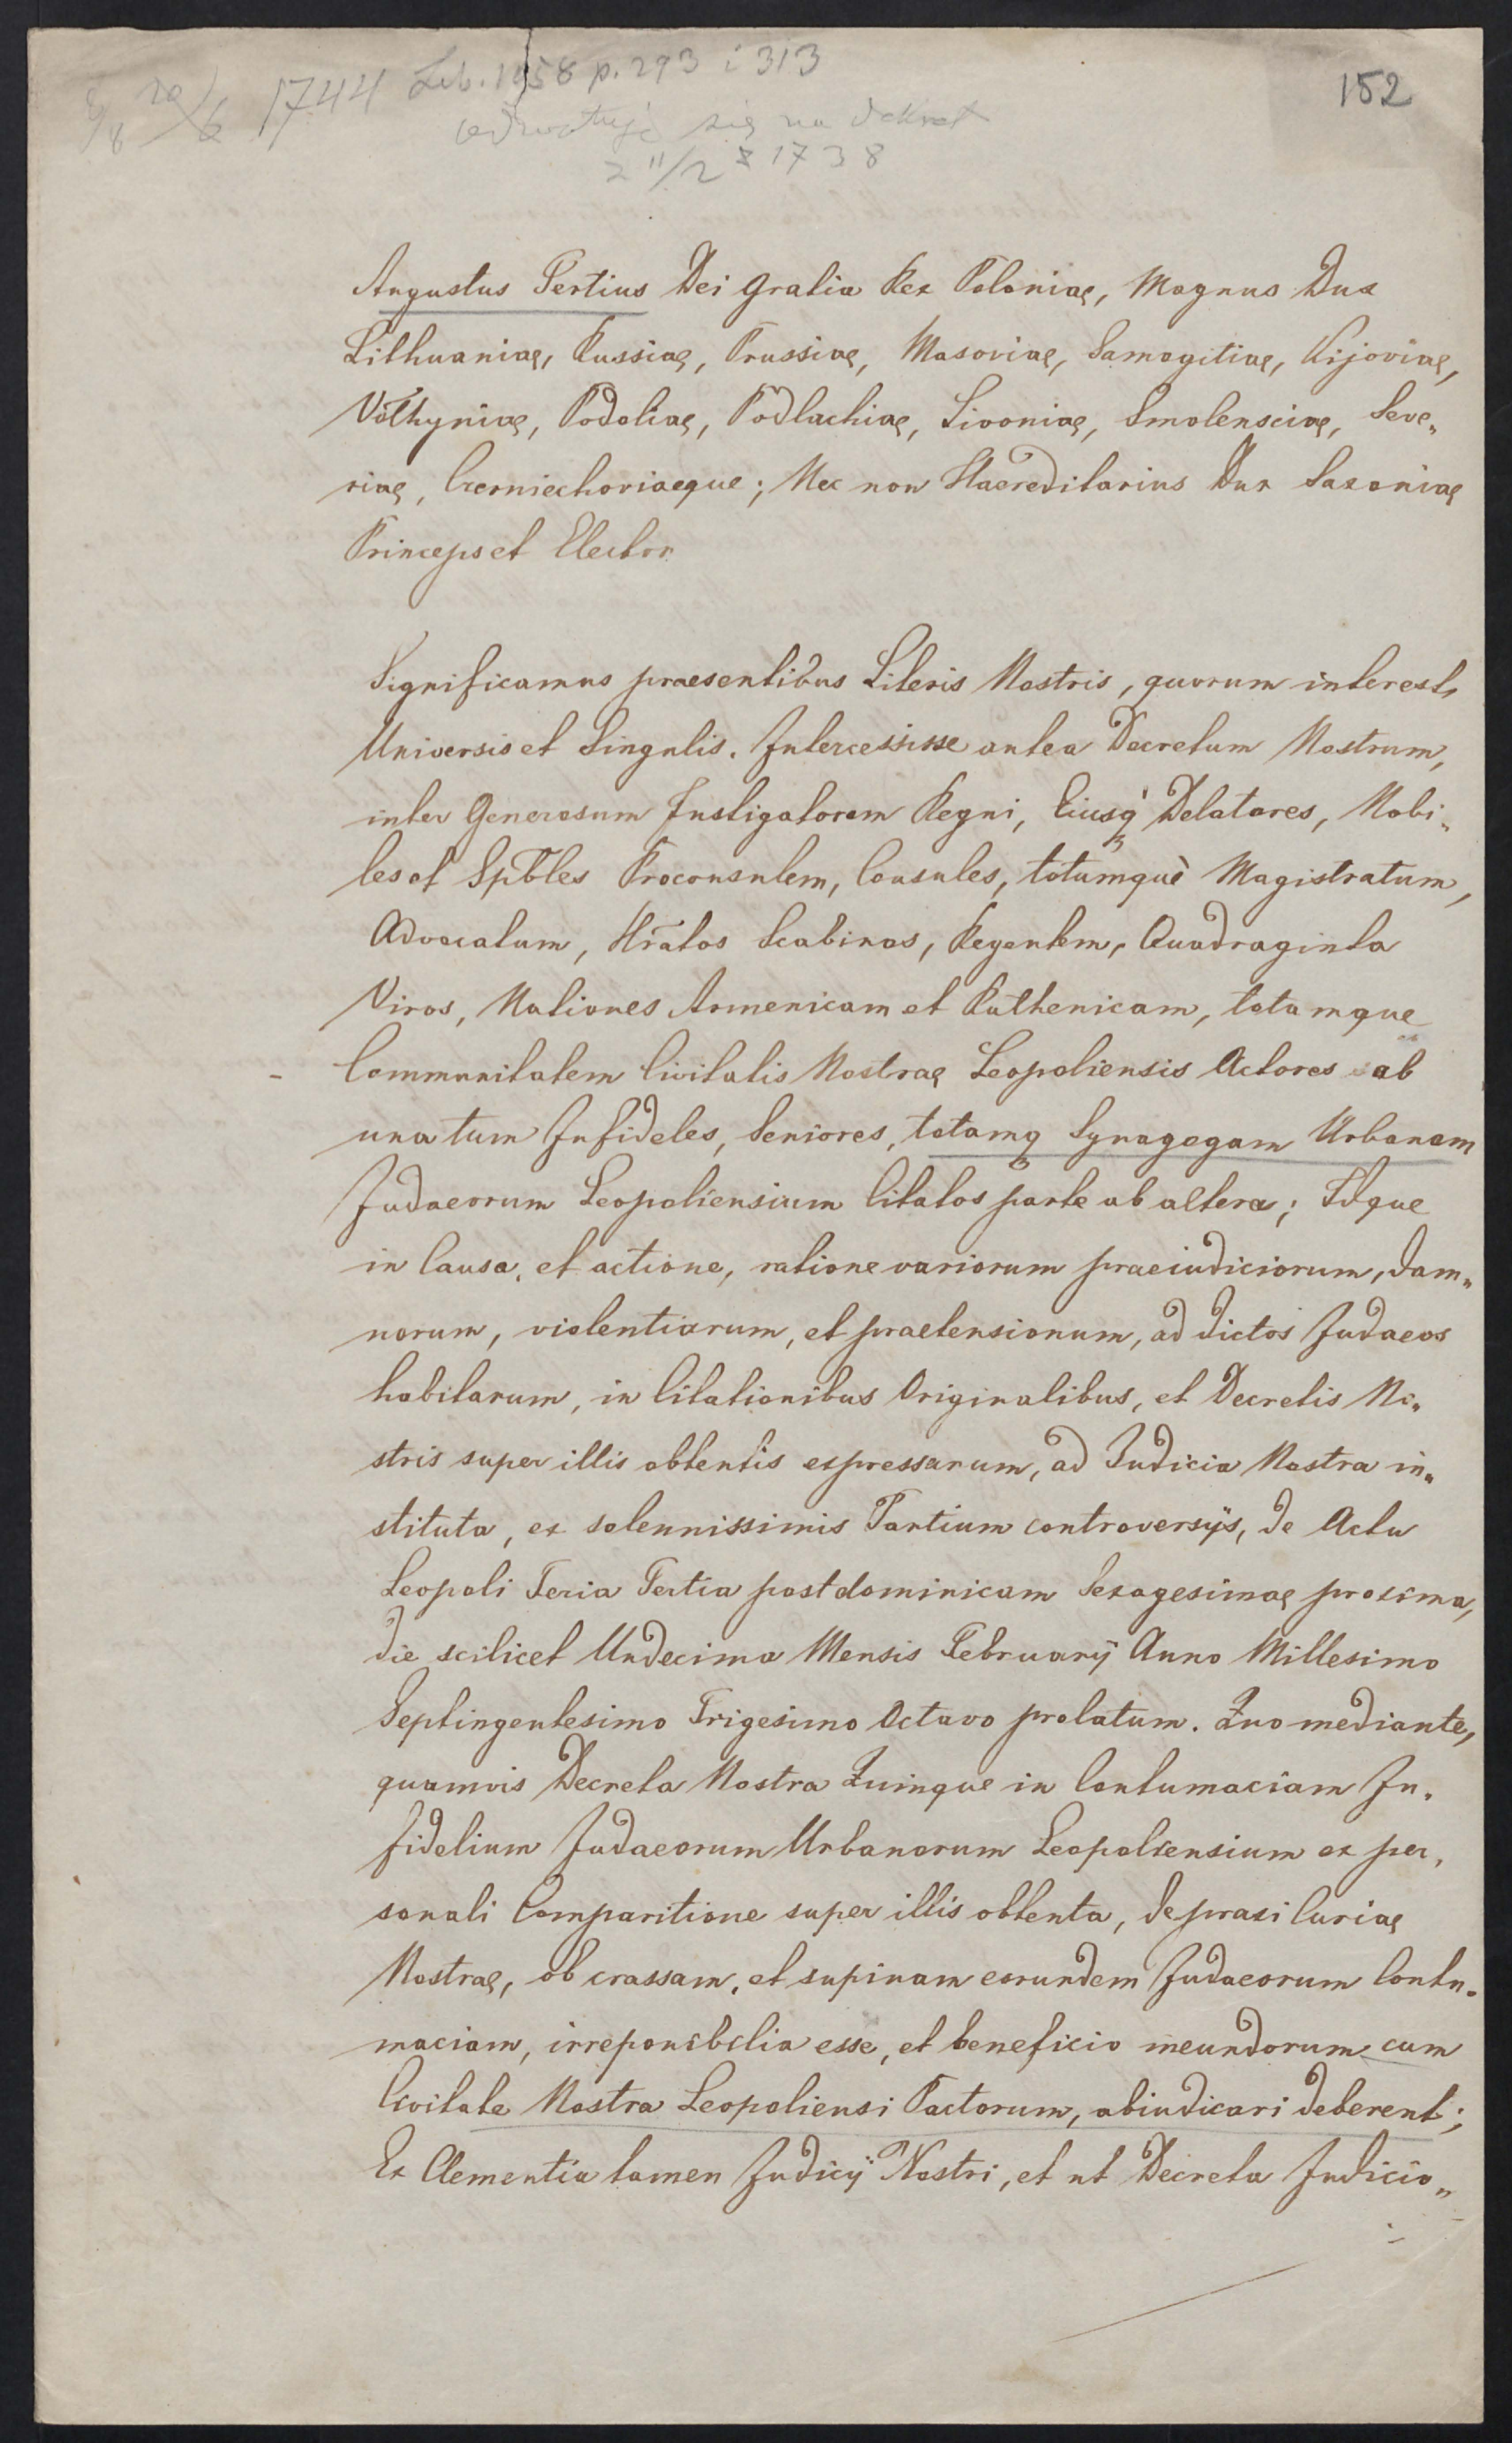 152
1744 Lib. 1058 p. 293 i 313
odwołuje się na dekret
z 11/2 z 1738
Augustus Tertius Dei Gratia Rex Poloniaę, Magnus Dux
Lithuaniaę, Russiaę, Prussiaę, Masoviaę, Samogitiaę, Kijoviaę,
Volhyniaę, Podoliaę, Podlachiaę, Livoniaę, Smolensciaę, Seve„
riaę, Czerniechoviaeque; Nec non Haereditarius Dux Saxoniaę
Princeps et Elector
Significamus praesentibus Literis Nostris, quorum interest,
Universis et Singulis. Intercessisse antea Decretum Nostrum,
inter Generosum Instigatorem Regni, Eiusq Delatores, Nobi„
les et Spbles Proconsulem, Consules, totumque Magistratum,
Advocatum, Hratos Scabinos, Regentem, Quadraginta
Viros, Nationes Armenicam et Ruthenicam, totamque
Communitatem Civitatis Nostraę Leopoliensis Actores ab
una tum Infideles, Seniores, totamq Synagogam Urbanam
Judaeorum Leopoliensium Citatos parte ab altera; Idque
in Causa, et actione, ratione variorum praeiudiciorum, dam„
norum, violentiarum, et praetensionum, ad dictos Judaeos
habitarum, in Citationibus Originalibus, et Decretis No„
stris super illis obtentis expressarum, ad Judicia Nostra in„
stituta, ex solennissimis Partium controversijs, de Actu
Leopoli Feria Tertia post dominicam Sexagesimaę proxima,
die scilicet Undecima Mensis Februarij Anno Millesimo
Septingentesimo Trigesimo Octavo prolatum. Quo mediante,
quamvis Decreta Nostra Quinque in Contumaciam In„
fidelium Judaeorum Urbanorum Leopoliensium ex per„
sonali Comparitione super illis obtenta, de praxi Curiaę
Nostraę, ob crassam, et supinam eorundem Judaeorum Contu„
maciam, irreponibilia esse, et beneficio ineundorum cum
Civitate Nostra Leopoliensi Pactorum, abiudicari deberent;
Ex Clementia tamen Judicij Nostri, et ut Decreta Judicio„